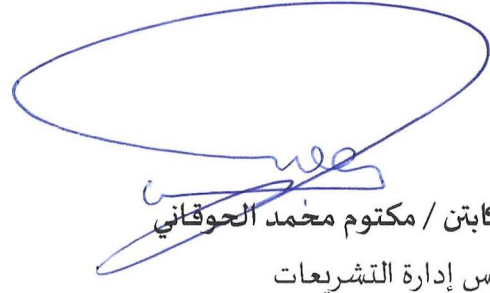 كابتن / مكتوم محمد الحوقاني
إدارة التشريعات